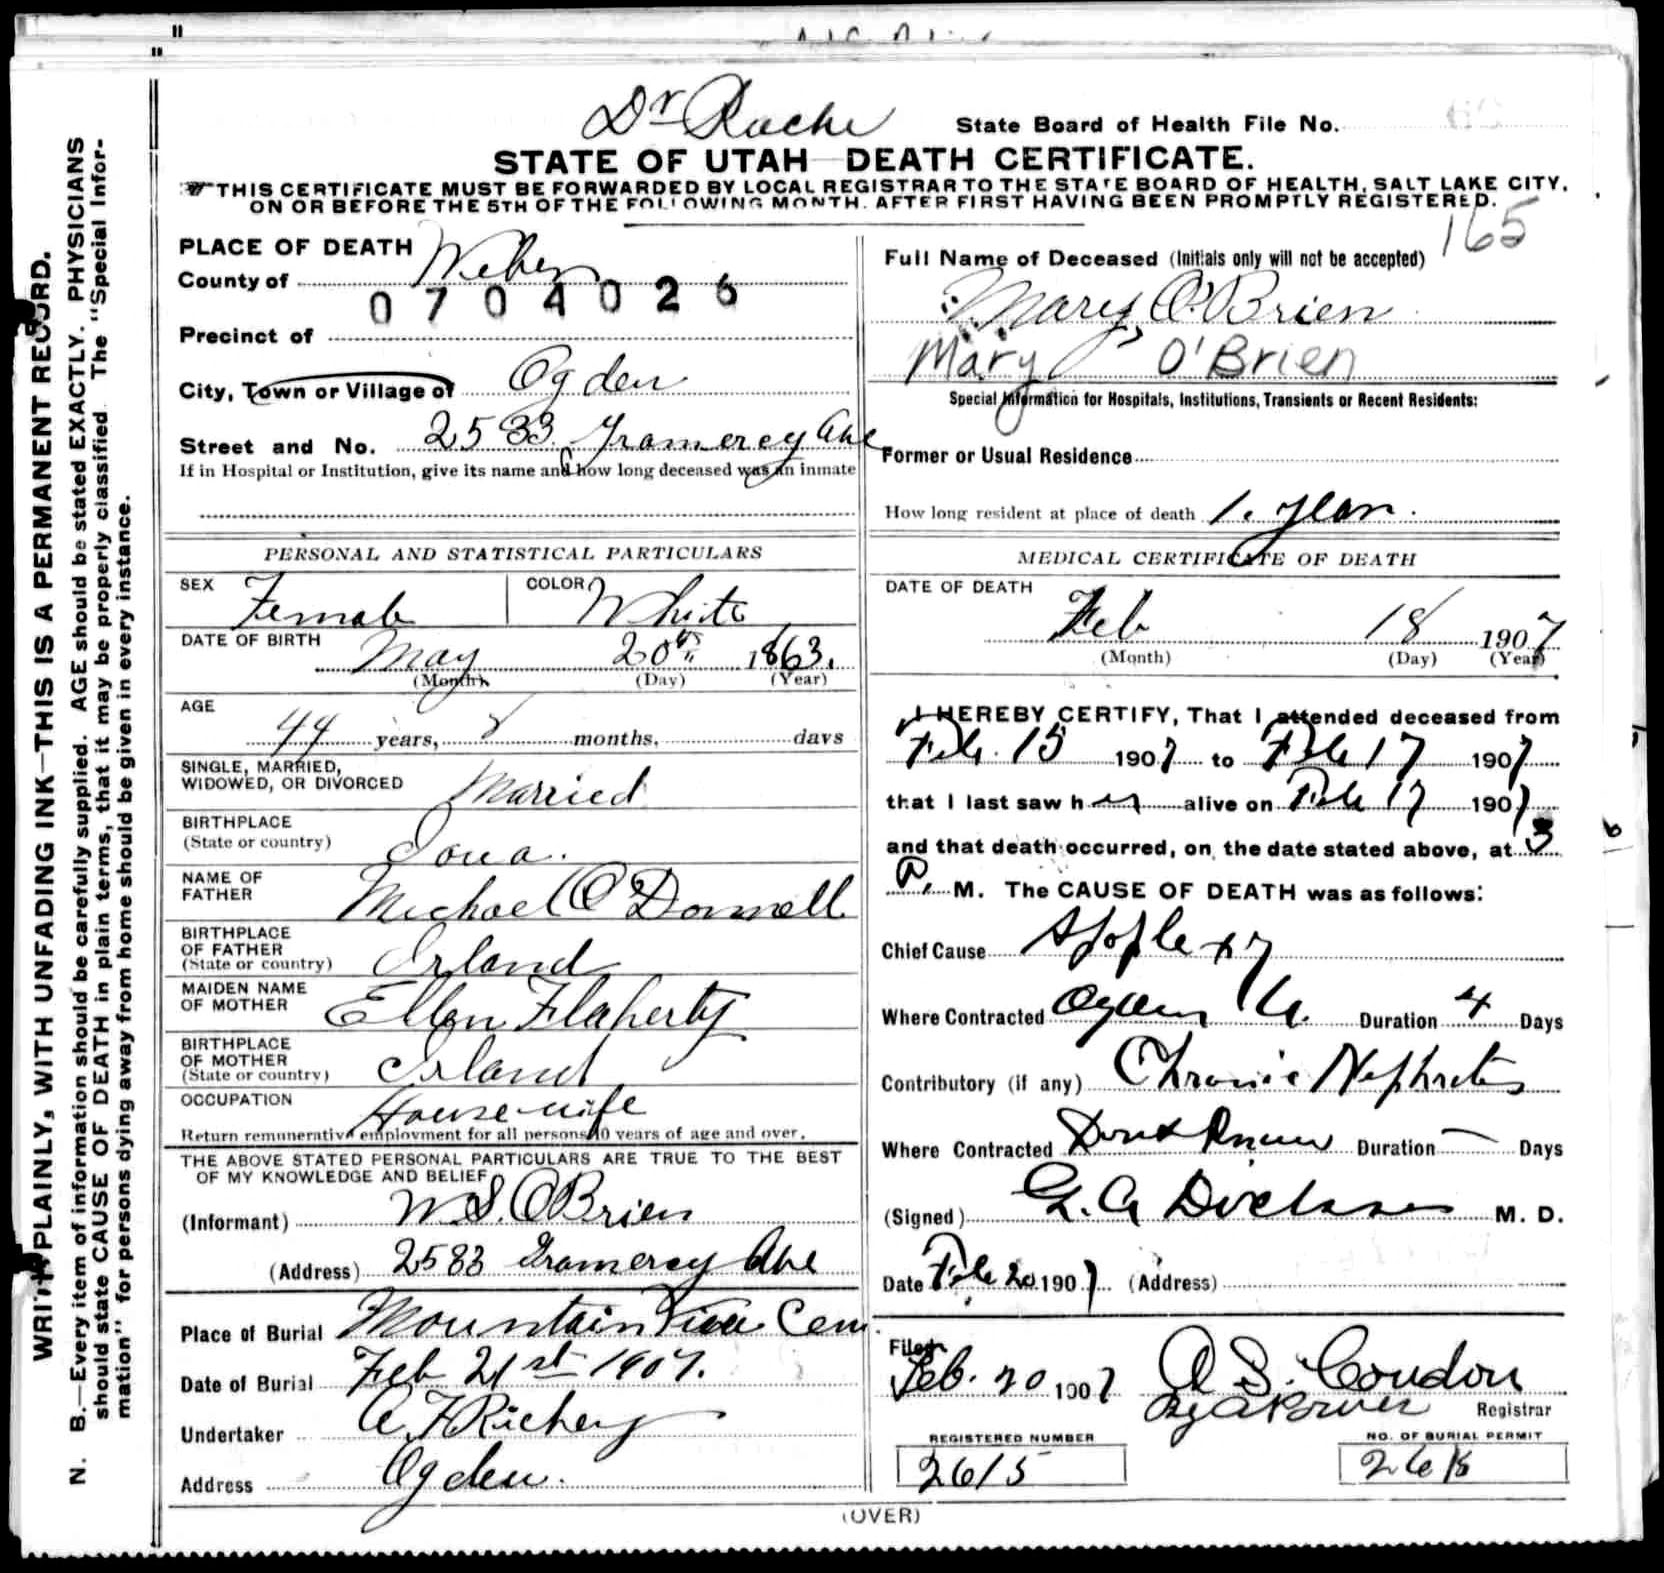 Dr Roche State Board of Health File No.
STATE OF UTAH DEATH CERTIFICATE.
THIS CERTIFICATE MUST BE FORWARDED BY LOCAL REGISTRAR TO THE STATE BOARD OF HEALTH, SALT LAKE CITY,
ON OR BEFORE THE 5TH OF THE FOLLOWING MONTH. AFTER FIRST HAVING BEEN PROMPTLY REGISTERED.
165
PLACE OF DEATH
County of Weber
0704026
Precinct of
City, Town or Village of Ogden
Street and No. 2583 Gramercy Ave
If in Hospital or Institution, give its name and how long deceased was an inmate
PERSONAL AND STATISTICAL PARTICULARS
SEX Female COLOR White
DATE OF BIRTH
May 20th 1863.
(Month) (Day) (Year)
AGE
44 years, 8 months, days
SINGLE, MARRIED,
WIDOWED, OR DIVORCED Married
BIRTHPLACE
(State or country) Ioua.
NAME OF
FATHER Michael O Donnell
BIRTHPLACE
OF FATHER
(State or country) Irland
MAIDEN NAME
OF MOTHER Ellen Flaherty
BIRTHPLACE
OF MOTHER
(State or country) Irland
OCCUPATION House-wife
Return remunerative employment for all persons 10 years of age and over.
THE ABOVE STATED PERSONAL PARTICULARS ARE TRUE TO THE BEST
OF MY KNOWLEDGE AND BELIEF
(Informant) W. S. O'Brien
(Address) 2583 Gramercy Ave
Place of Burial Mountain View Cem.
Date of Burial Feb 21st 1907.
Undertaker A. F. Richey
Address Ogden.
Full Name of Deceased (Initials only will not be accepted)
Mary O'Brien
Mary O'Brien
Special Information for Hospitals, Institutions, Transients or Recent Residents:
Former or Usual Residence
How long resident at place of death 1. year.
MEDICAL CERTIFICATE OF DEATH
DATE OF DEATH
Feb 18 1907
(Month) (Day) (Year)
I HEREBY CERTIFY, That I attended deceased from
Feb. 15 1907 to Feb 17 1907
that I last saw her alive on Feb 17 1907
and that death occurred, on the date stated above, at 3
M. The CAUSE OF DEATH was as follows:
Chief Cause Apoplexy
Where Contracted Ogden U. Duration 4 Days
Contributory (if any) Chronic Nephritis
Where Contracted Dont Know Duration — Days
(Signed) G. A Dickson M. D.
Date Feb 20 1907 (Address)
Filed
Feb. 20 1907 A S. Condon
Registrar
REGISTERED NUMBER
2615
NO. OF BURIAL PERMIT
(OVER)
WRITE PLAINLY, WITH UNFADING INK—THIS IS A PERMANENT RECORD.
N. B.—Every item of information should be carefully supplied. AGE should be stated EXACTLY. PHYSICIANS
should state CAUSE OF DEATH in plain terms, that it may be properly classified The "Special Infor-
mation" for persons dying away from home should be given in every instance.